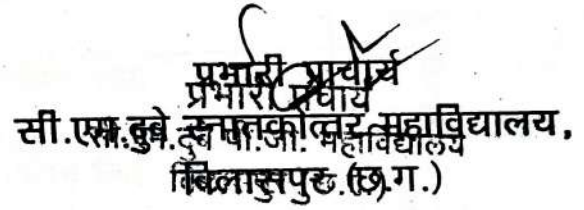 प्रभारी प्राचार्य
प्रभारी प्राचार्य
सी.एम.दुबे स्नातकोत्तर महाविद्यालय,
दुबे पी.जी. महाविद्यालय
बिलासपुर (छ.ग.)